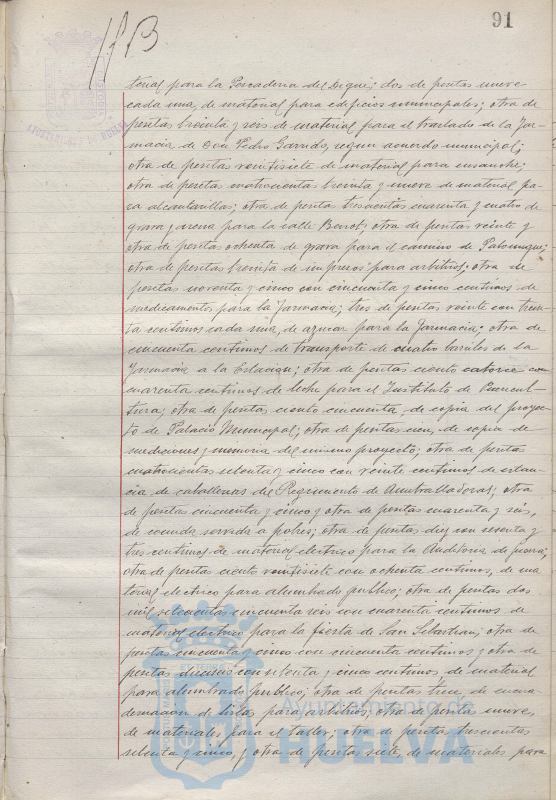 91
terial para la Pescaderia del Dique; dos de pesetas nueve
cada una, de material para edificios municipales; otra de
pesetas treinta y seis de material para el traslado de la Far-
macia de Don Pedro Garrido, segun acuerdo municipal;
otra de pesetas veintisiete de material para ensanche;
otra de pesetas cuatrocientas treinta y nueve de material pa-
ra alcantarillas; otra de pesetas trescientas cuarenta y cuatro de
grava y arena para la calle Berrot; otra de pesetas veinte y
otra de pesetas ochenta de grava para el camino de
otra de pesetas treinta de impresos para arbitrios; otra de
pesetas noventa y cinco con cincuenta y cinco centimos de
medicamentos para la Farmacia; tres de pesetas veinte con trein-
ta centimos cada una, de azucar para la Farmacia; otra de
cincuenta centimos de transporte de cuatro barriles de la
Farmacia a la Estacion; otra de pesetas ciento catorce con
cuarenta centimos de leche para el Instituto de Puericul-
tura; otra de pesetas ciento cincuenta, de copia del proyec-
to de Palacio Municipal; otra de pesetas cien, de copia de
mediciones y memoria del mismo proyecto; otra de pesetas
cuatrocientas setenta y cinco con veinte centimos de estan-
cia de caballerias del Regimiento de Ametralladoras; otra
de pesetas cincuenta y cinco y otra de pesetas cuarenta y seis,
de comida servida a pobres; otra de pesetas diez con sesenta y
tres centimos de material electrico para la Auditoria de guerra;
otra de pesetas ciento veintisiete con ochenta centimos, de ma-
terial electrico para alumbrado publico; otra de pesetas dos
mil setecientas cincuenta y seis con cuarenta centimos de
material electrico para la fiesta de San Sebastian; otra de
pesetas cincuenta y cinco con cincuenta centimos y otra de
pesetas dieciseis con setenta y cinco centimos, de material
para alumbrado publico; otra de pesetas trece, de encua-
dernacion de listas para arbitrios; otra de pesetas nueve,
de materiales para el taller; otra de pesetas trescientas
setenta y cinco, y otra de pesetas siete, de materiales para
Ayuntamiento de
HUELVA